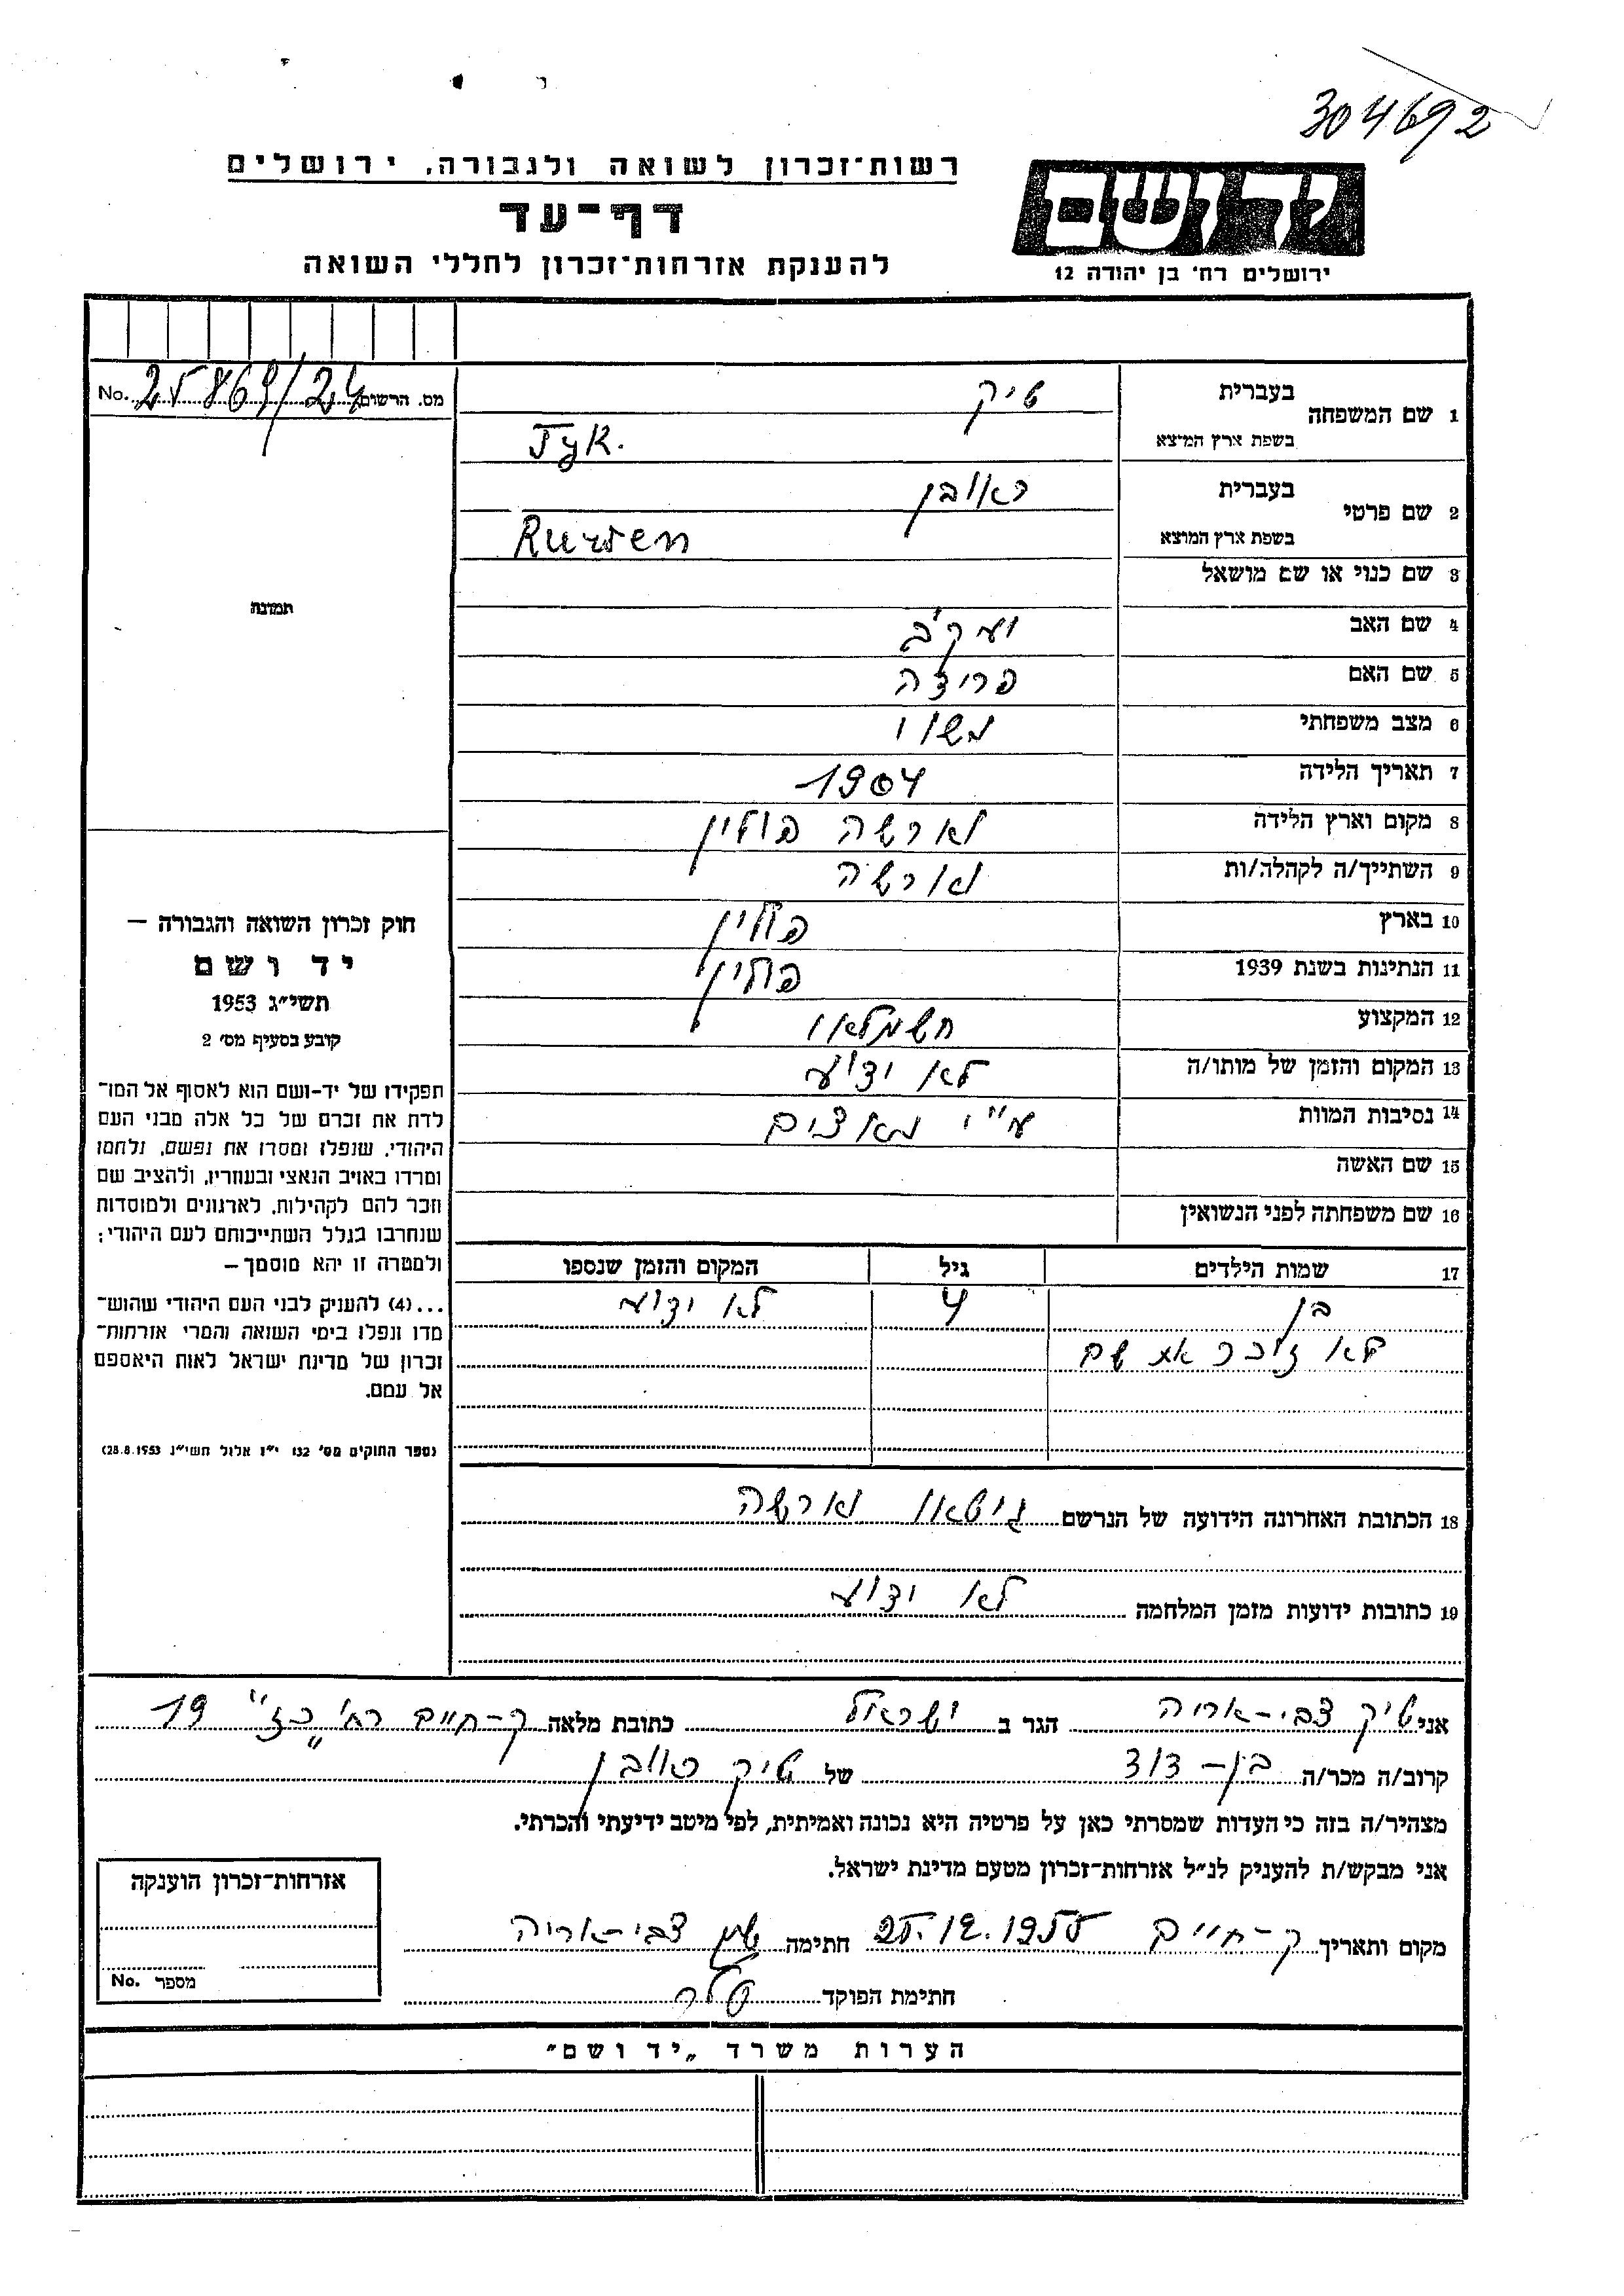 304692
רשות־זכרון לשואה ולגבורה, ירושלים
דף־עד
להענקת אזרחות־זכרון לחללי השואה
יד ושם
ירושלים רח׳ בן יהודה 12
מס. הרשום 25869/24 No.
תמונה
חוק זכרון השואה והגבורה –
יד ושם
תשי״ג 1953
קובע בסעיף מס׳ 2
תפקידו של יד-ושם הוא לאסוף אל המו־
לדת את זכרם של כל אלה מבני העם
היהודי, שנפלו ומסרו את נפשם, נלחמו
ומרדו באויב הנאצי ובעוזריו, ולהציב שם
וזכר להם לקהילות, לארגונים ולמוסדות
שנחרבו בגלל השתייכותם לעם היהודי;
ולמטרה זו יהא מוסמך –
...(4) להעניק לבני העם היהודי שהוש־
מדו ונפלו בימי השואה והמרי אזרחות־
זכרון של מדינת ישראל לאות היאספם
אל עמם.
(ספר החוקים מס׳ 132 י״ז אלול תשי״ג 28.8.1953)
1 שם המשפחה בעברית טיק
בשפת ארץ המוצא Tyk.
2 שם פרטי בעברית ראובן
בשפת ארץ המוצא Ruwen
3 שם כנוי או שם מושאל
4 שם האב יעקב
5 שם האם פרידה
6 מצב משפחתי נשוי
7 תאריך הלידה 1904
8 מקום וארץ הלידה וארשה פולין
9 השתייך/ה לקהלה/ות וארשה
10 בארץ פולין
11 הנתינות בשנת 1939 פולין
12 המקצוע חשמלאי
13 המקום והזמן של מותו/ה לא ידוע
14 נסיבות המוות ע״י נאצים
15 שם האשה
16 שם משפחתה לפני הנשואין
17 שמות הילדים גיל המקום והזמן שנספו
בן 4 לא ידוע
לא זוכר את שם
18 הכתובת האחרונה הידועה של הנרשם גיטאו וארשה
19 כתובות ידועות מזמן המלחמה לא ידוע
אני טיק צבי-אריה הגר ב ישראל כתובת מלאה ק-חיים רח׳ „כז״ 19
קרוב/ה מכר/ה בן-דוד של טיק ראובן
מצהיר/ה בזה כי העדות שמסרתי כאן על פרטיה היא נכונה ואמיתית, לפי מיטב ידיעתי והכרתי.
אני מבקש/ת להעניק לנ״ל אזרחות-זכרון מטעם מדינת ישראל.
מקום ותאריך ק-חיים 25.12.1955 חתימה טיק צבי-אריה
חתימת הפוקד
אזרחות-זכרון הוענקה
מספר No.
הערות משרד „יד ושם״